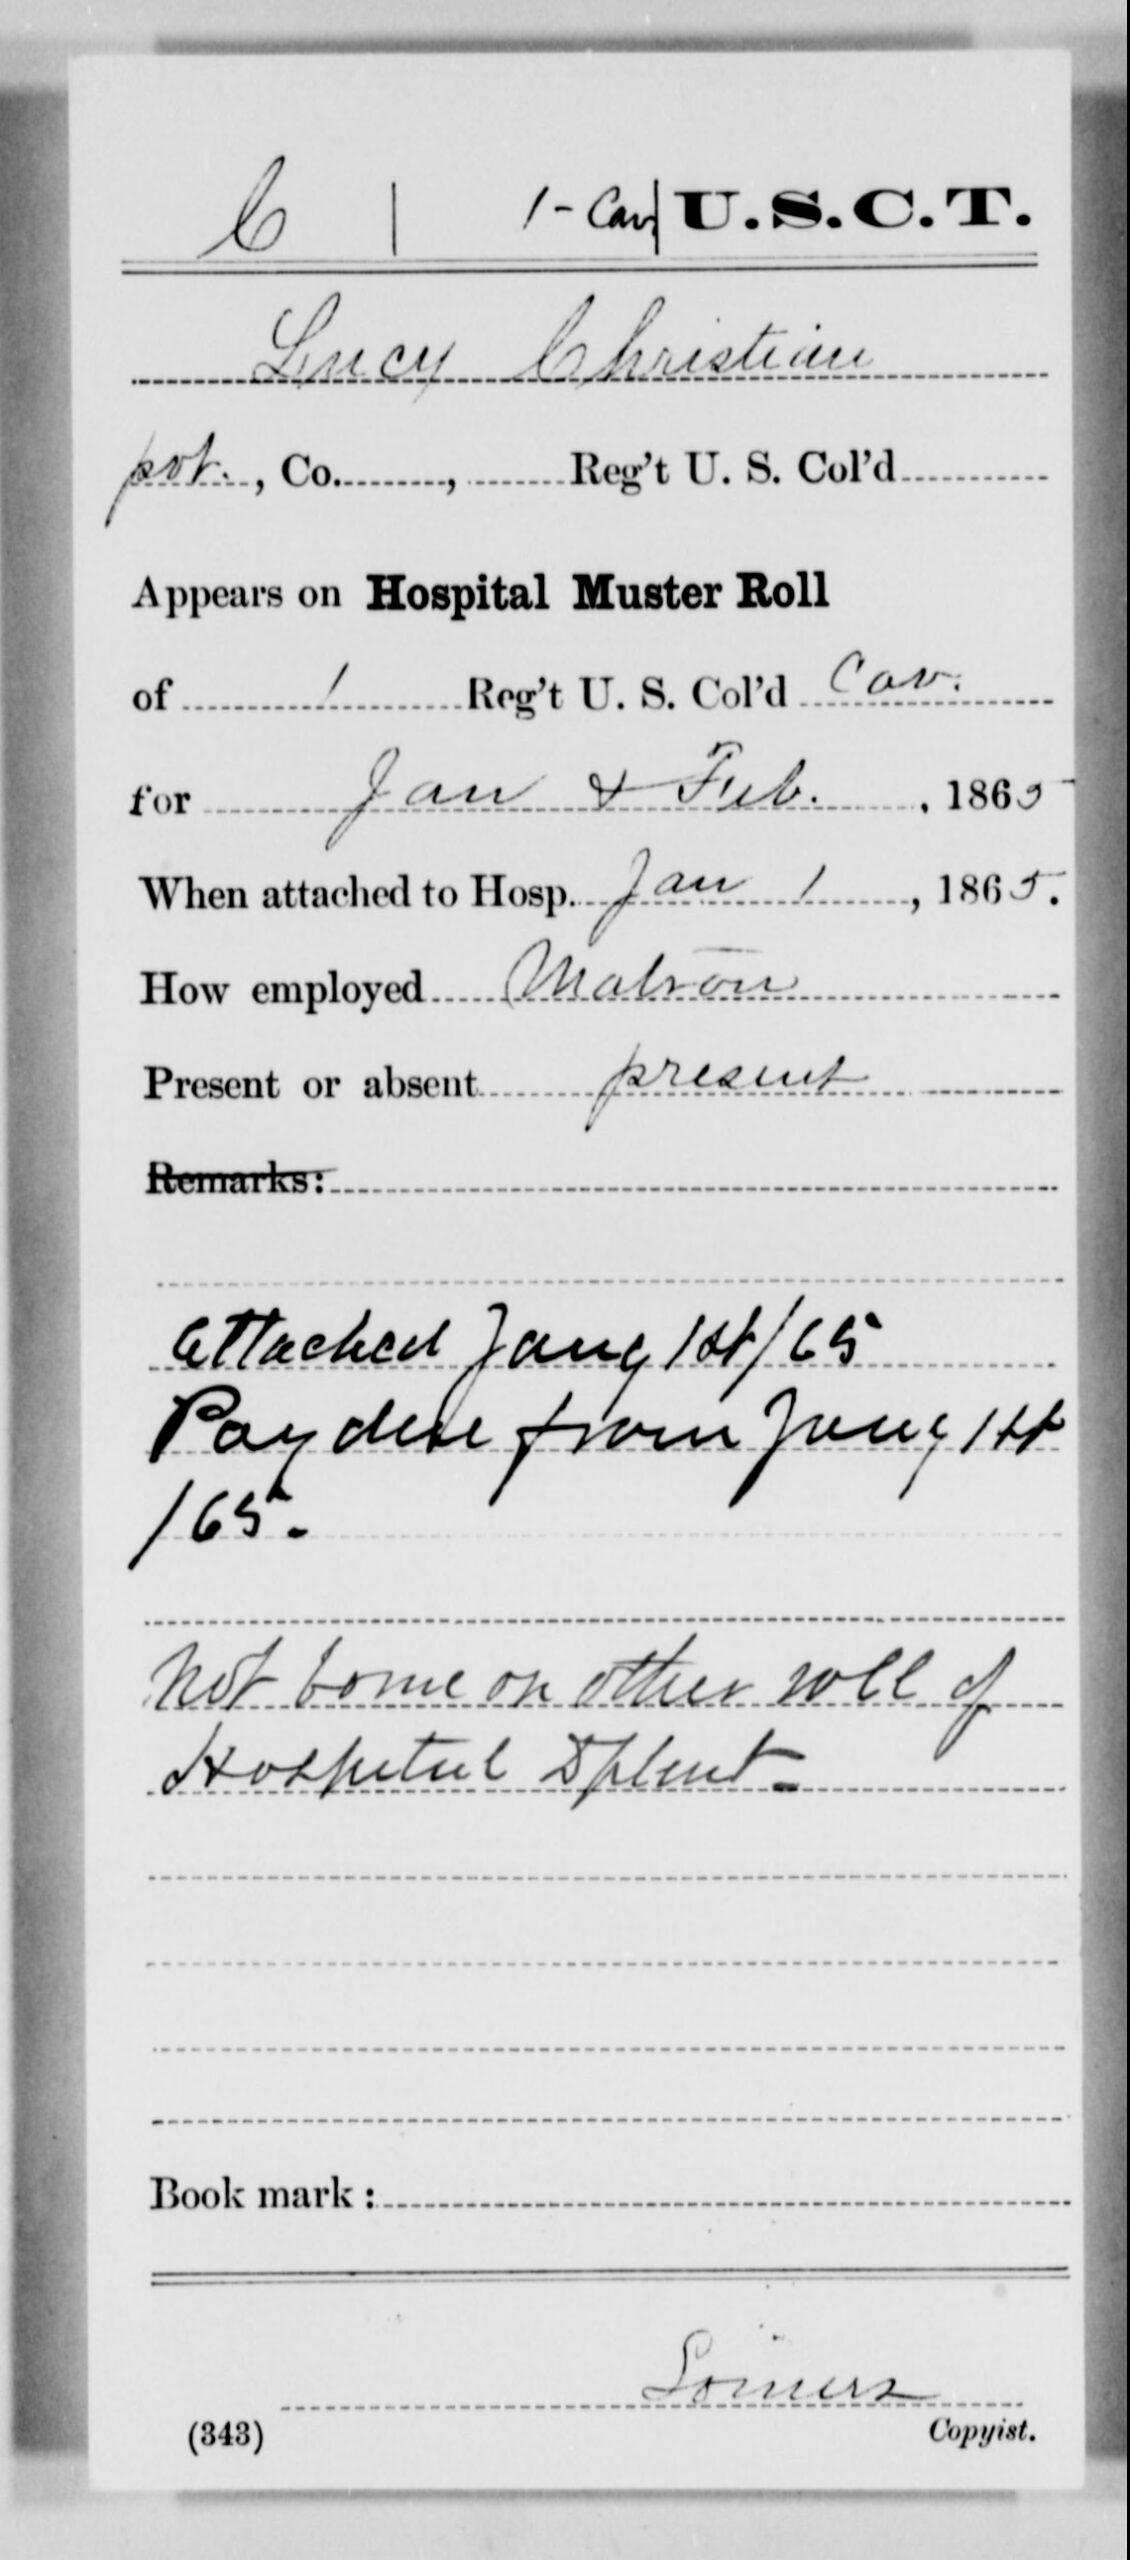 C | 1-Cav. | U.S.C.T.
Lucy Christian
pvt., Co. , Reg't U. S. Col'd
Appears on Hospital Muster Roll
of 1 Reg't U. S. Col'd Cav.
for Jan & Feb. , 1865
When attached to Hosp. Jan 1 , 1865.
How employed Matron
Present or absent present
Remarks:
Attached Jany 1st/65
Pay due from Jany 1st
/65.
Not borne on other roll of
Hospital Dptmt-
Book mark:
(343)
Copyist.